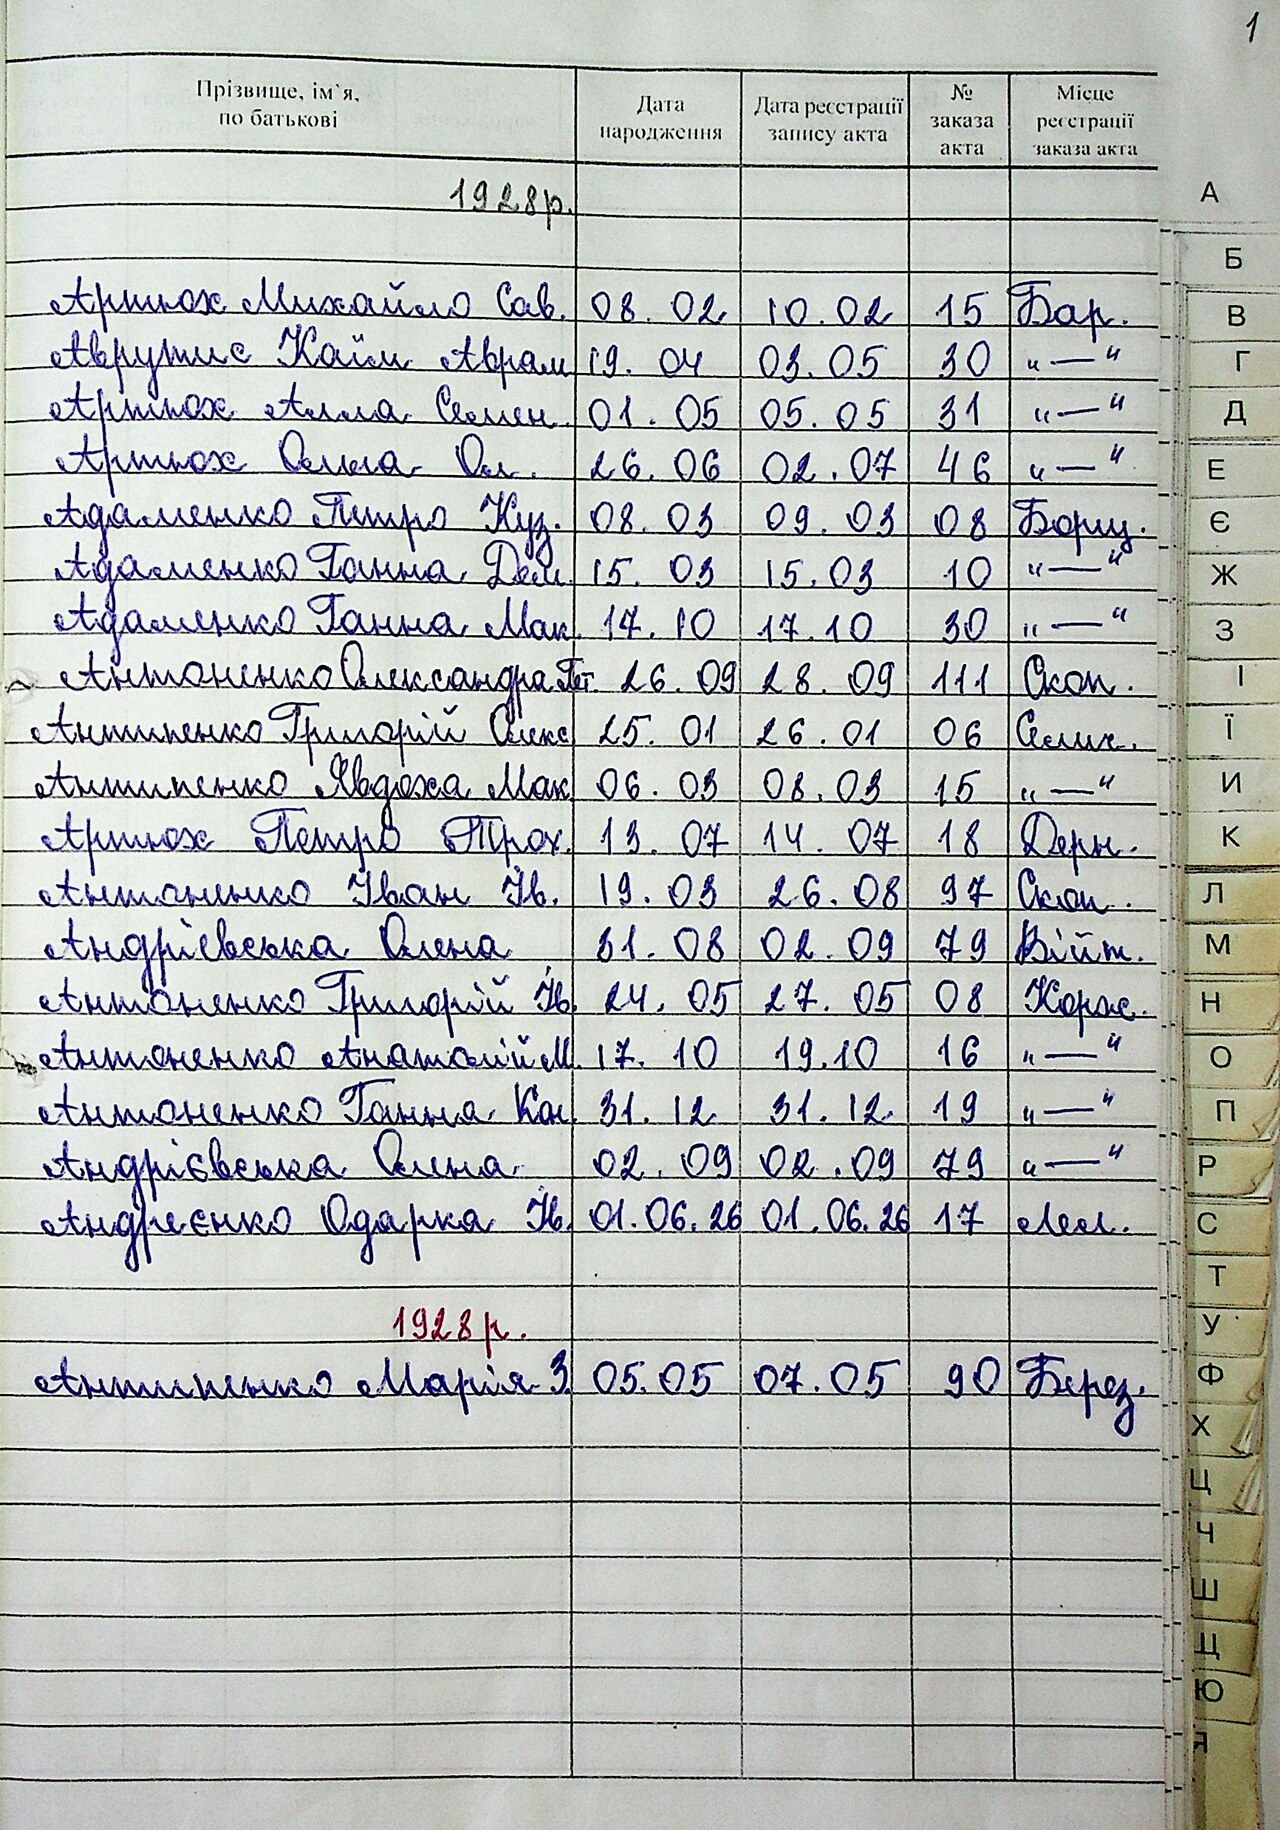 1
Прізвище, ім`я, по батькові Дата народження Дата реєстрації запису акта № заказа акта Місце реєстрації заказа акта
1928р.
Артюх Михайло Сав. 08. 02 10. 02 15 Бар.
Аврутис Хаїм Аврам 19. 04 03. 05 30 "—"
Артюх Алла Семен. 01. 05 05. 05 31 "—"
Артюх Ольга Ол. 26. 06 02. 07 46 "—"
Адаменко Петро Куз. 08. 03 09. 03 08 Борщ.
Адаменко Ганна Дем. 15. 03 15. 03 10 "—"
Адаменко Ганна Мак. 17. 10 17. 10 30 "—"
Антоненко Олександра Пет. 26. 09 28. 09 111 Скоп.
Антипенко Григорій Олекс 25. 01 26. 01 06 Селич.
Антипенко Явдоха Мак 06. 03 08. 03 15 "—"
Артюх Петро Трох. 13. 07 14. 07 18 Дерн.
Антоненко Іван Ів. 19. 03 26. 08 97 Скоп.
Андрієвська Олена 31. 08 02. 09 79 Війт.
Антоненко Григорій Ів. 24. 05 27. 05 08 Корж.
Антоненко Анатолій М. 17. 10 19. 10 16 "—"
Антоненко Ганна Кон. 31. 12 31. 12 19 "—"
Андрієвська Олена 02. 09 02. 09 79 "—"
Андреєнко Одарка Ів. 01. 06. 26 01. 06. 26 17 Лем.
1928р.
Антипенко Марія З. 05. 05 07. 05 90 Берез.
А
Б
В
Г
Д
Е
Є
Ж
З
І
Ї
И
К
Л
М
Н
О
П
Р
С
Т
У
Ф
Х
Ц
Ч
Ш
Щ
Ю
Я